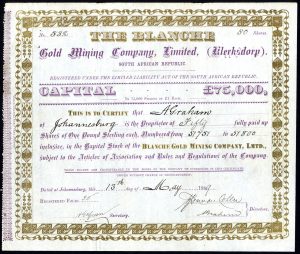 No. 552 50 Shares
THE BLANCHE
Gold Mining Company, Limited, (Klerksdorp).
SOUTH AFRICAN REPUBLIC
REGISTERED UNDER THE LIMITED LIABILITY ACT OF THE SOUTH AFRICAN REPUBLIC.
CAPITAL £75,000,
In 75,000 Shares of £1 Each.
THIS IS TO CERTIFY that A. Graham
of Johannesburg is the Proprietor of Fifty fully paid up
Shares of One Pound Sterling each, Numbered from 31751 to 31800
inclusive, in the Capital Stock of the BLANCHE GOLD MINING COMPANY, LMTD.,
subject to the Articles of Association and Rules and Regulations of the Company.
Dated at Johannesburg, this 13th day of May
Registered Folio
Secretary.
Directors.